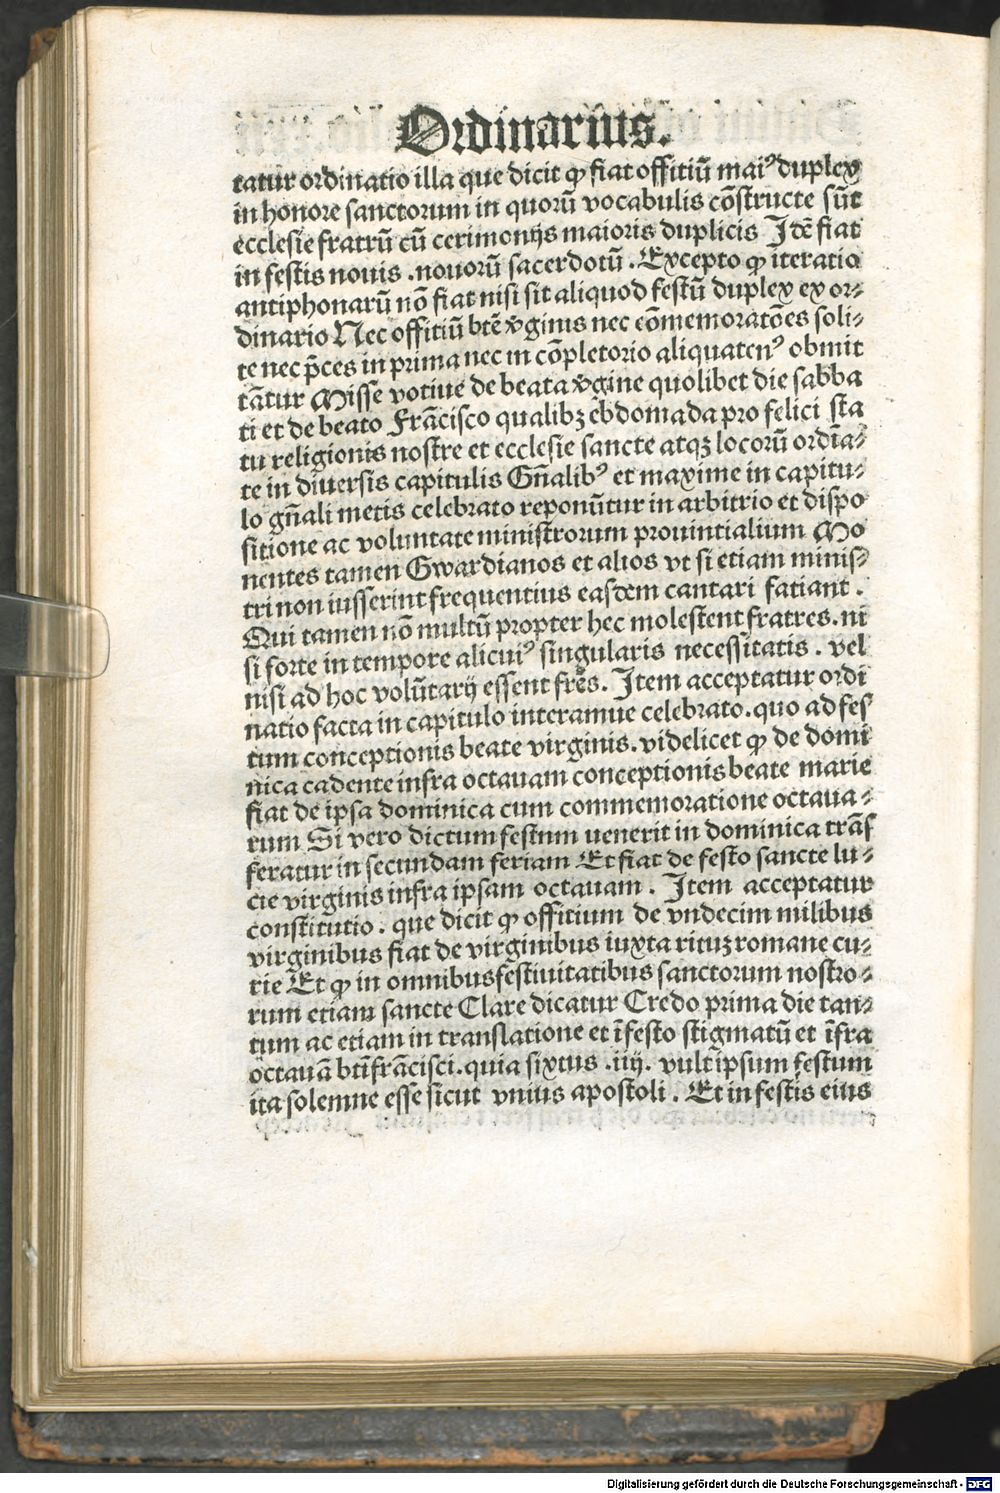 Ordinarius.
tatur ordinatio illa que dicit ꝙ fiat offitiū maiꝰ duplex
in honore sanctorum in quorū vocabulis cōstructe sūt
ecclesie fratrū cū cerimonijs maioris duplicis Itē fiat
in festis nouis .nouorū sacerdotū. Excepto ꝙ iteratio
antiphonarū nō fiat nisi sit aliquod festū duplex ex or⸗
dinario Nec offitiū btē v̄ginis nec cōmemoratōes soli⸗
te nec p̄ces in prima nec in cōpletorio aliquatenꝰ obmit
tātur Misse votiue de beata v̄gine quolibet die sabba
ti et de beato Frācisco qualibꝫ ebdomada pro felici sta
tu religionis nostre et ecclesie sancte atqꝫ locorū ordīa⸗
te in diuersis capitulis Gn̄alibꝰ et maxime in capitu⸗
lo gn̄ali metis celebrato reponūtur in arbitrio et dispo
sitione ac voluntate ministrorum prouintialium Mo
nentes tamen Gwardianos et alios vt si etiam minis⸗
tri non iusserint frequentius easdem cantari fatiant.
Qui tamen nō multū propter hec molestent fratres. ni
si forte in tempore alicuiꝰ singularis necessitatis. vel
nisi ad hoc volūtarij essent fr̄es. Item acceptatur ordi
natio facta in capitulo interamne celebrato. quo ad fes
tum conceptionis beate virginis. videlicet ꝙ de domi
nica cadente infra octauam conceptionis beate marie
fiat de ipsa dominica cum commemoratione octaua⸗
rum Si vero dictum festum uenerit in dominica trās
feratur in secundam feriam Et fiat de festo sancte lu⸗
cie virginis infra ipsam octauam. Item acceptatur
constitutio. que dicit ꝙ offitium de vndecim milibus
virginibus fiat de virginibus iuxta rituꝫ romane cu⸗
rie Et ꝙ in omnibus festiuitatibus sanctorum nostro⸗
rum etiam sancte Clare dicatur Credo prima die tan⸗
tum ac etiam in translatione et ī festo stigmatū et īfra
octauā btī frācisci. quia sixtus .iiij. vult ipsum festum
ita solemne esse sicut vnius apostoli. Et in festis eius
Digitalisierung gefördert durch die Deutsche Forschungsgemeinschaft - DFG